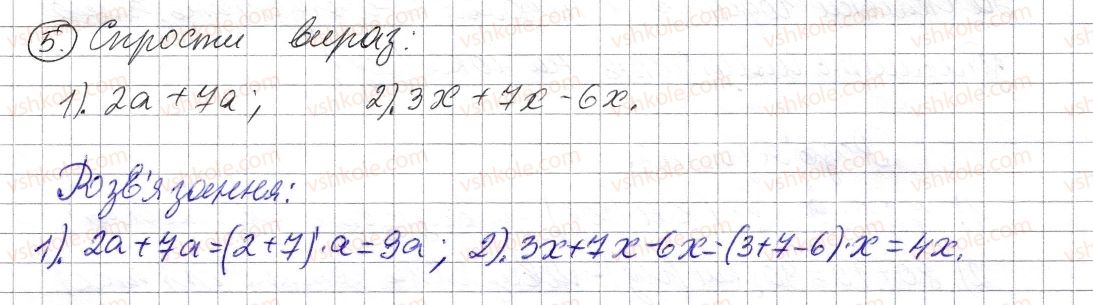 5. Спрости вираз:
1). 2a + 7a; 2). 3x + 7x - 6x.
Розв'язання:
1). 2a + 7a = (2 + 7) · a = 9a; 2). 3x + 7x - 6x = (3 + 7 - 6) · x = 4x.